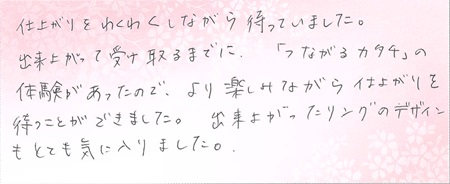 仕上がりをわくわくしながら待っていました。
出来上がって受け取るまでに、「つながるカタチ」の
体験があったので、より楽しみながら仕上がりを
待つことができました。出来上がったリングのデザイン
もとても気に入りました。